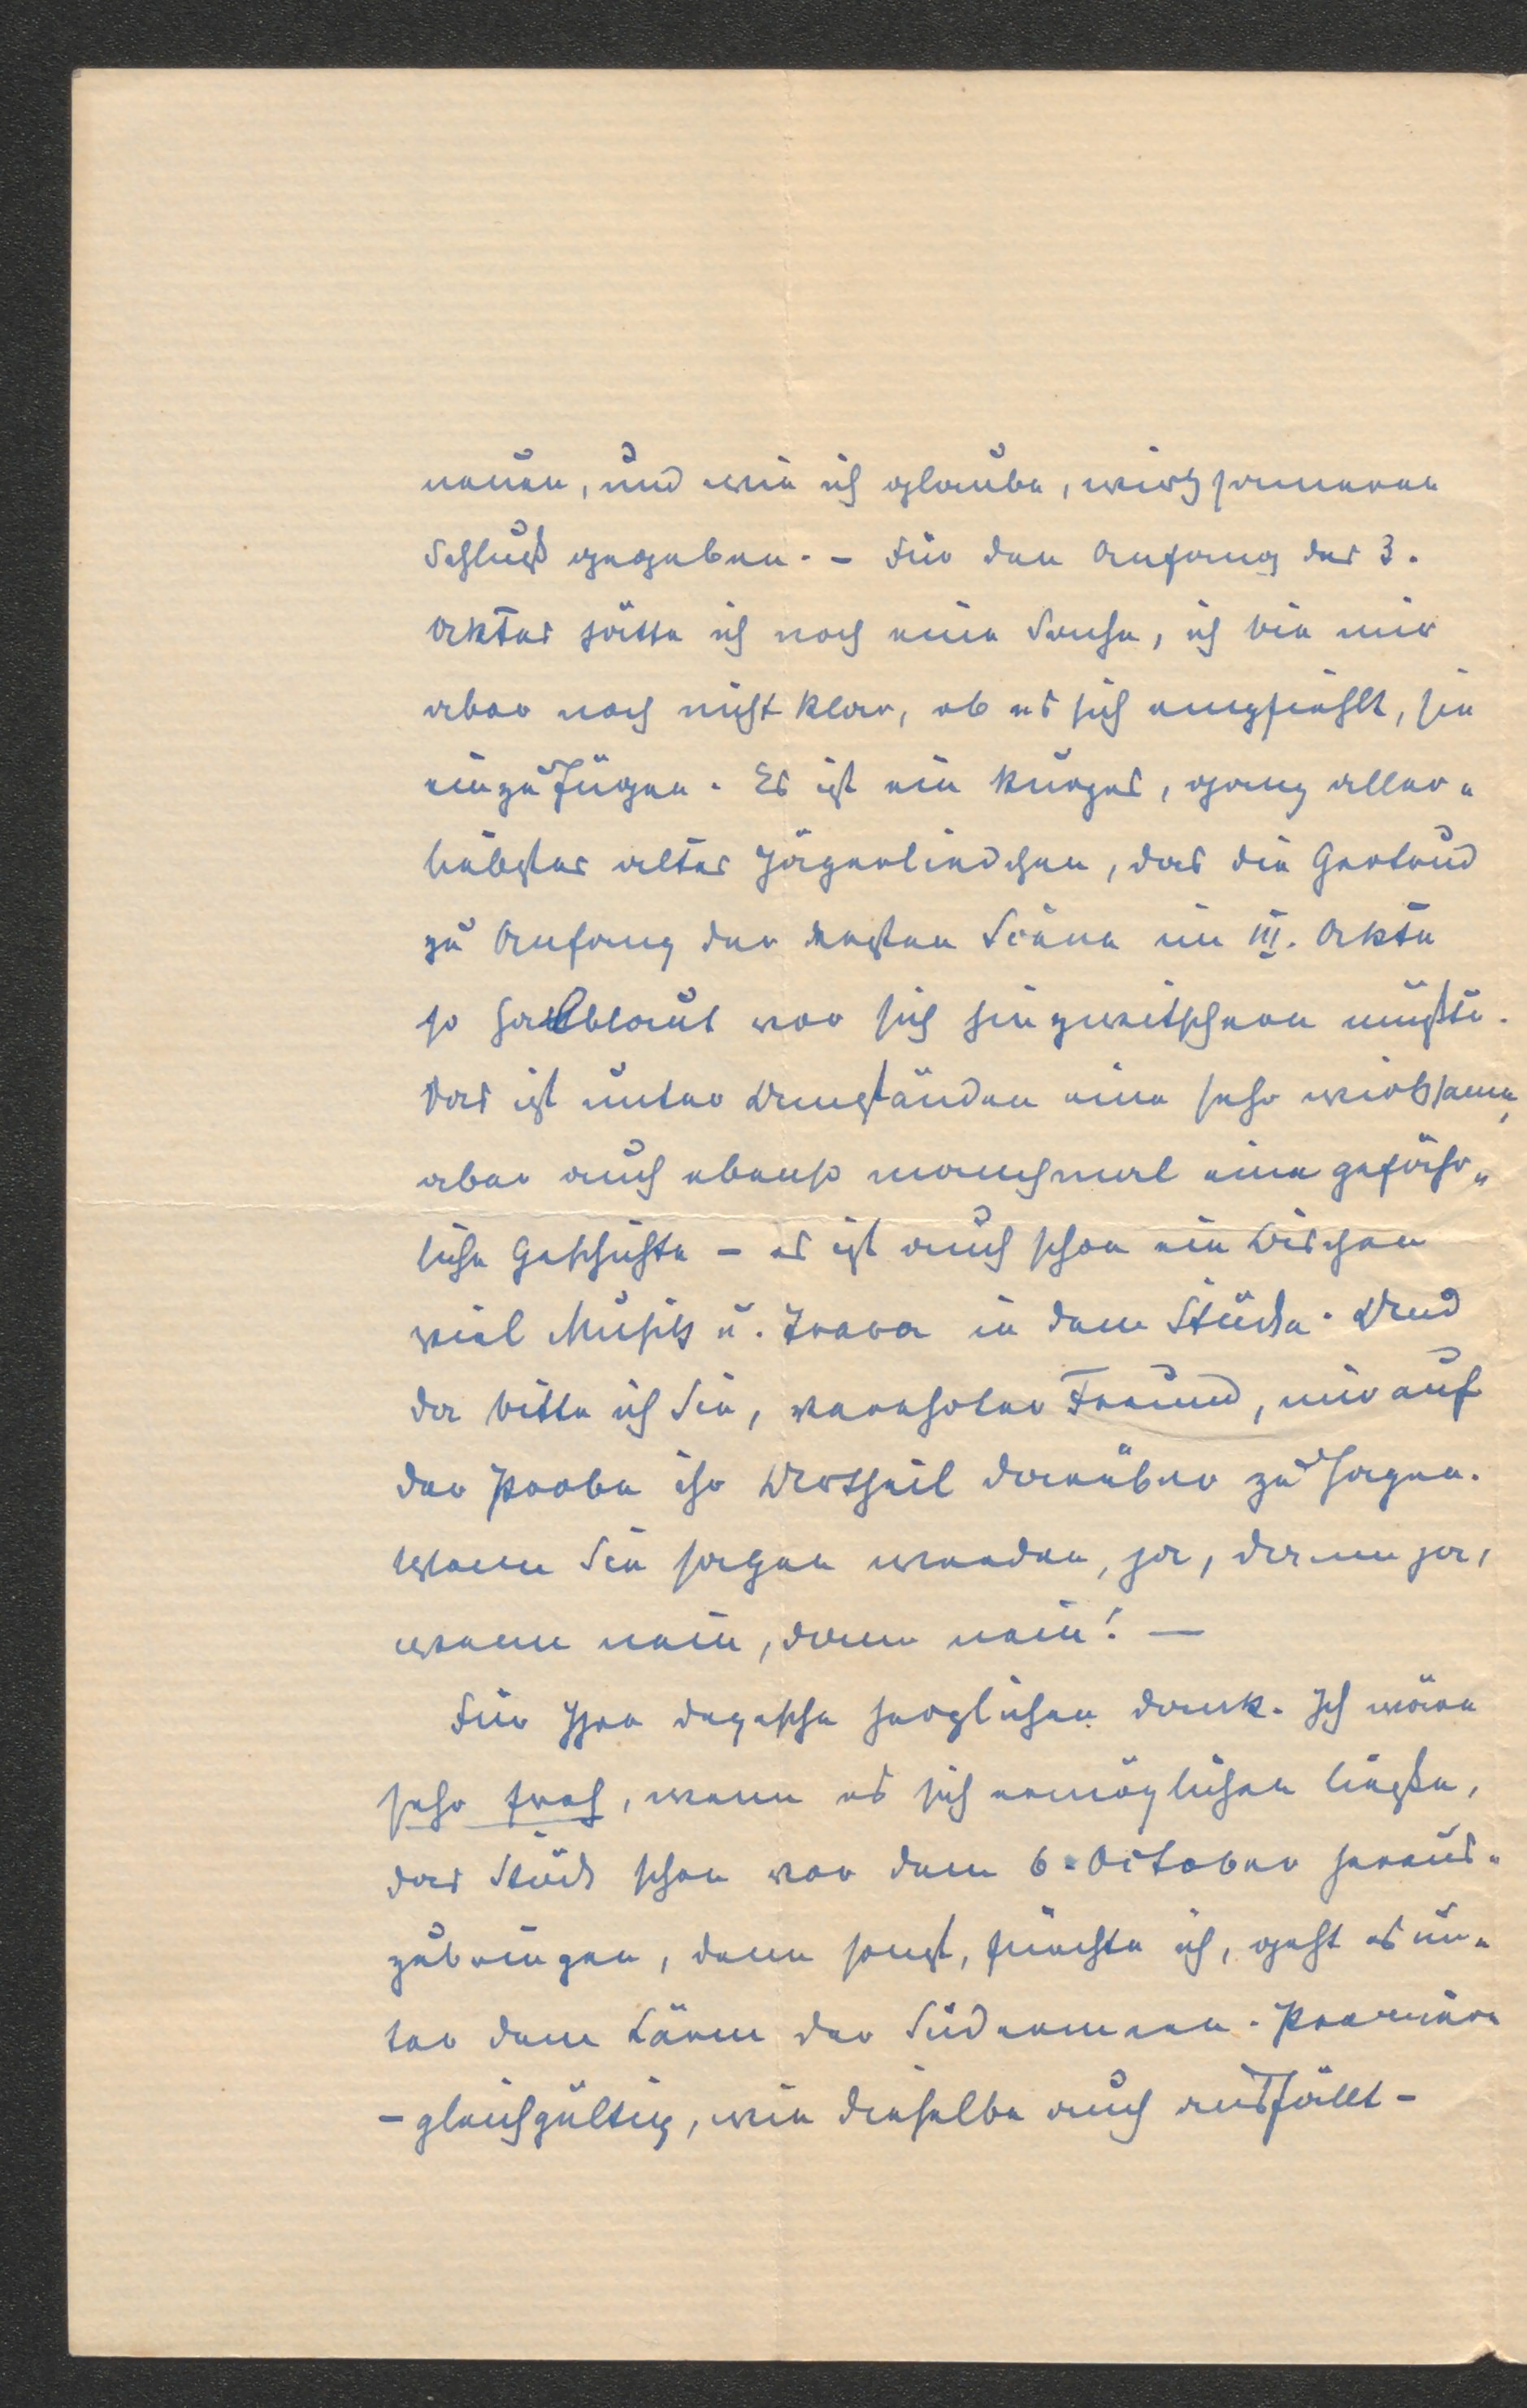 neuen, und wie ich glaube, wirksameren
Schluß gegeben. – Für den Anfang des 3.
Aktes hätte ich noch eine Sache, ich bin mir
aber noch nicht klar, ob es sich empfiehlt, sie
einzufügen. Es ist ein kurzes, ganz aller-
liebstes altes Jägerliedchen, das die Gertrud
zu Anfang der ersten Scene im III. Akte
so halblaut vor sich hinzwitschern müßte.
Das ist unter Umständen eine sehr wirksame,
aber auch ebenso manchmal eine gefähr-
liche Geschichte – es ist auch schon ein Bischen
viel Musik u. Trara in dem Stücke. Und
da bitte ich Sie, verehrter Freund, mir auf
der Probe ihr Urtheil darüber zu sagen.
Wenn Sie sagen werden, ja, dann ja,
wenn nein, dann nein! –
Für Ihre Depesche herzlichen Dank. Ich wäre
sehr froh, wenn es sich ermöglichen ließe,
das Stück schon vor dem 6. October heraus-
zubringen, denn sonst, fürchte ich, geht es un-
ter dem Lärm der Sudermann-Premiere
– gleichgültig, wie dieselbe auch ausfällt –